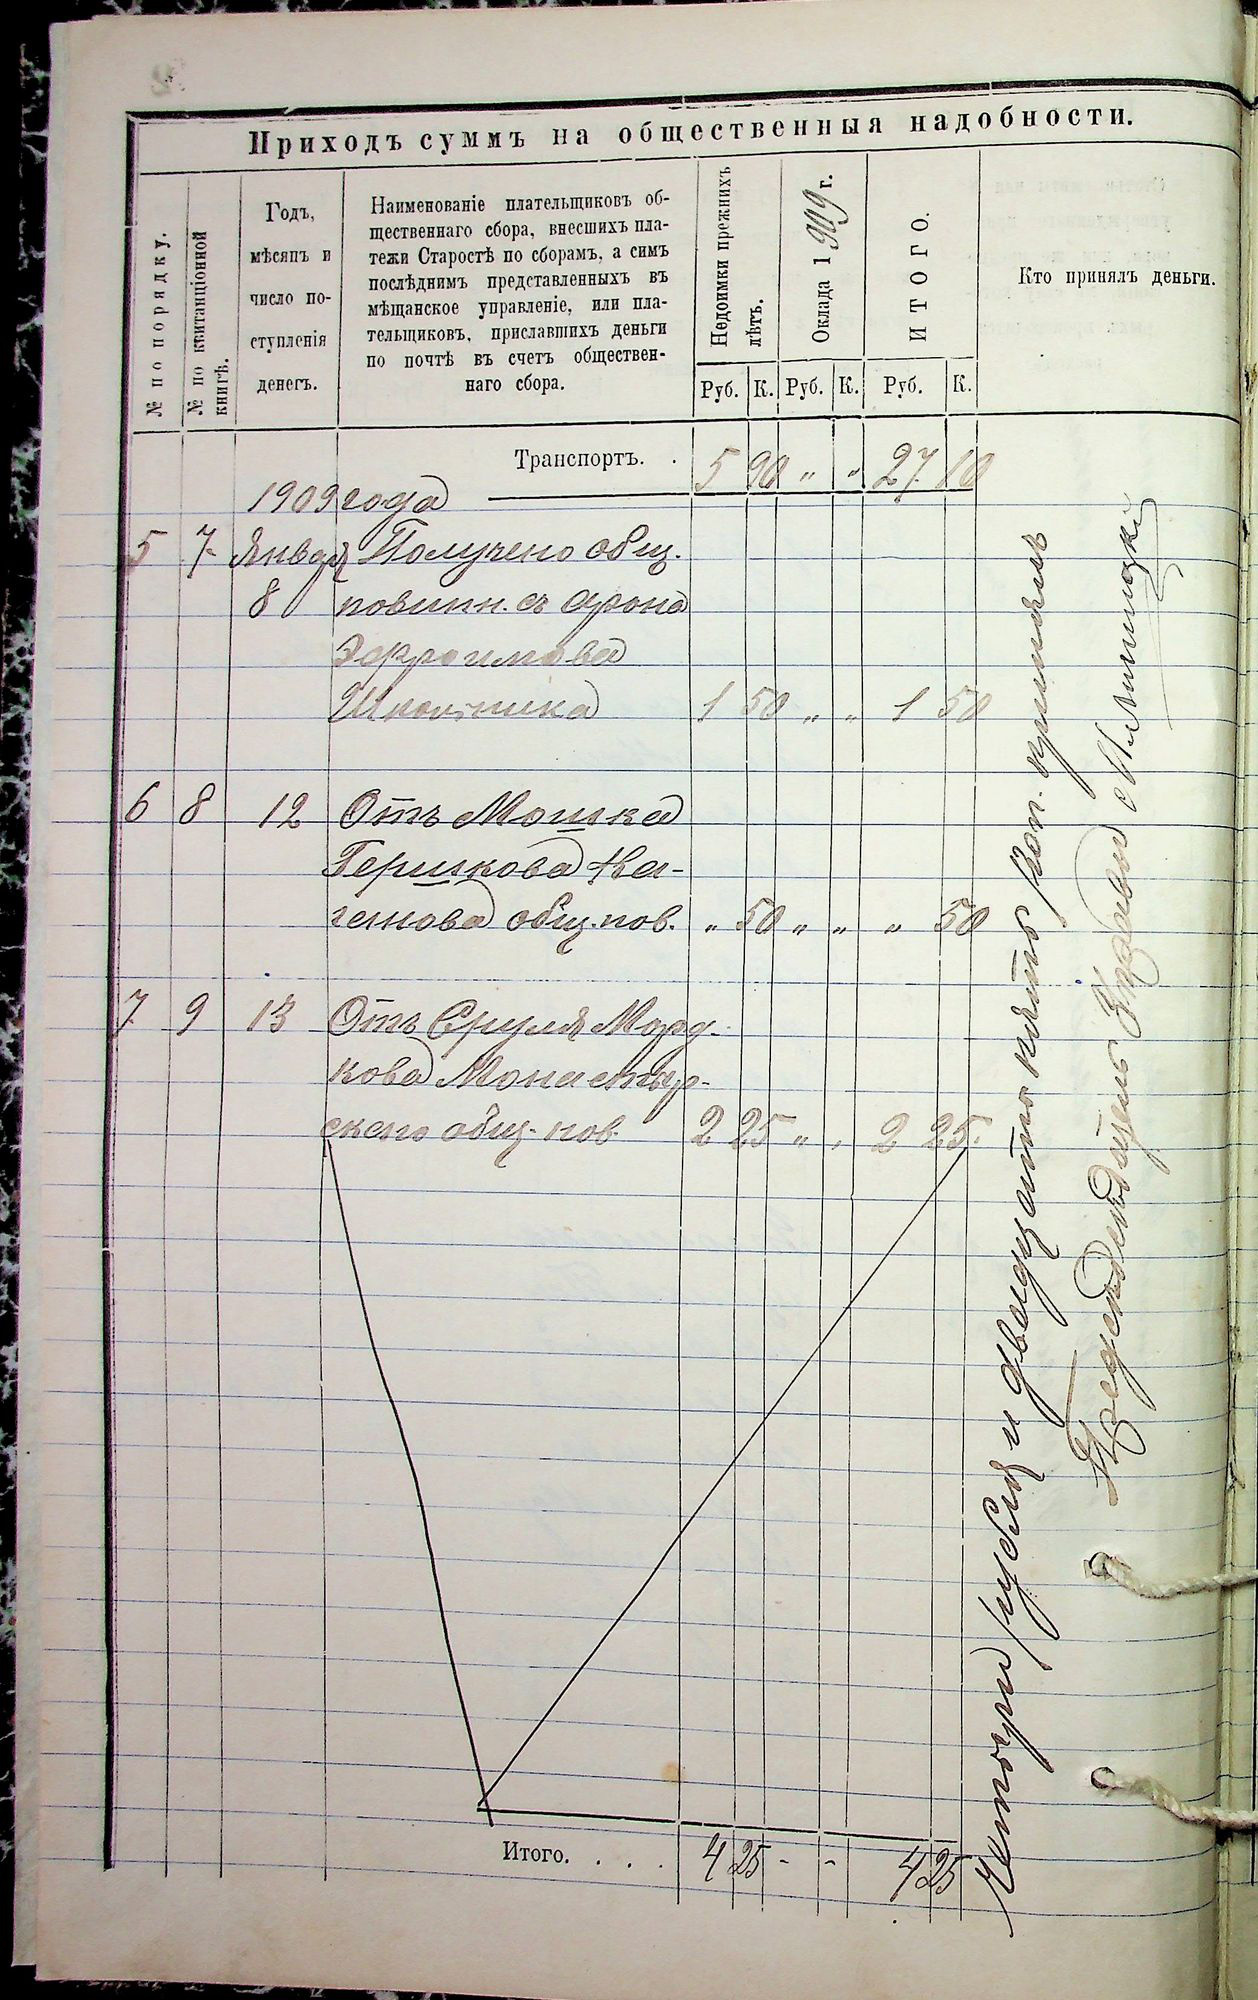 Приходъ суммъ на общественныя надобности.
№ по порядку.
№ по квитанціонной
книгѣ.
Годъ,
мѣсяцъ и
число по-
ступленія
денегъ.
Наименованіе плательщиковъ об-
щественнаго сбора, внесшихъ пла-
тежи Старостѣ по сборамъ, а симъ
послѣднимъ представленныхъ въ
мѣщанское управленіе, или пла-
тельщиковъ, приславшихъ деньги
по почтѣ въ счетъ обществен-
наго сбора.
Недоимки прежнихъ
лѣтъ.
Оклада 1909 г.
ИТОГО.
Кто принялъ деньги.
Руб. К. Руб. К. Руб. К.
Транспортъ. . 5 90 " " 27 10
1909 года
5 7 Января Получено общ.
8 повинн. съ Арона
Эфроимова
Школьника 1 50 " " 1 50
6 8 12 Отъ Мошка
Гершкова Ка-
ганова общ. пов. " 50 " " " 50
7 9 13 Отъ Сруля Морд-
кова Монастыр-
скаго общ. пов. 2 25 " " 2 25.
Итого. . . . 4 25 - - 4 25
Четыри рубля и двадцать пять коп. принялъ